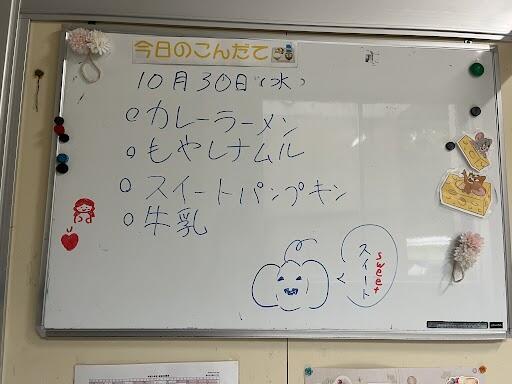 今日のこんだて
10月30日(水)
○カレーラーメン
○もやしナムル
○スイートパンプキン
○牛乳
sweet
スイート